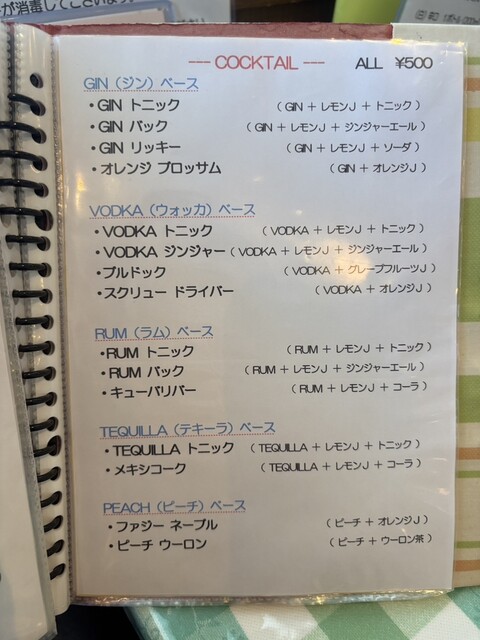 が消毒してございます。
--- COCKTAIL --- ALL ¥500
GIN（ジン）ベース
・GIN トニック （ GIN + レモンJ + トニック ）
・GIN バック （ GIN + レモンJ + ジンジャーエール ）
・GIN リッキー （ GIN + レモンJ + ソーダ ）
・オレンジ ブロッサム （ GIN + オレンジJ ）
VODKA（ウォッカ）ベース
・VODKA トニック （ VODKA + レモンJ + トニック ）
・VODKA ジンジャー （ VODKA + レモンJ + ジンジャーエール ）
・ブルドック （ VODKA + グレープフルーツJ ）
・スクリュー ドライバー （ VODKA + オレンジJ ）
RUM（ラム）ベース
・RUM トニック （ RUM + レモンJ + トニック ）
・RUM バック （ RUM + レモンJ + ジンジャーエール ）
・キューバリバー （ RUM + レモンJ + コーラ ）
TEQUILLA（テキーラ）ベース
・TEQUILLA トニック （ TEQUILLA + レモンJ + トニック ）
・メキシコーク （ TEQUILLA + レモンJ + コーラ ）
PEACH（ピーチ）ベース
・ファジー ネーブル （ ピーチ + オレンジJ ）
・ピーチ ウーロン （ ピーチ + ウーロン茶 ）